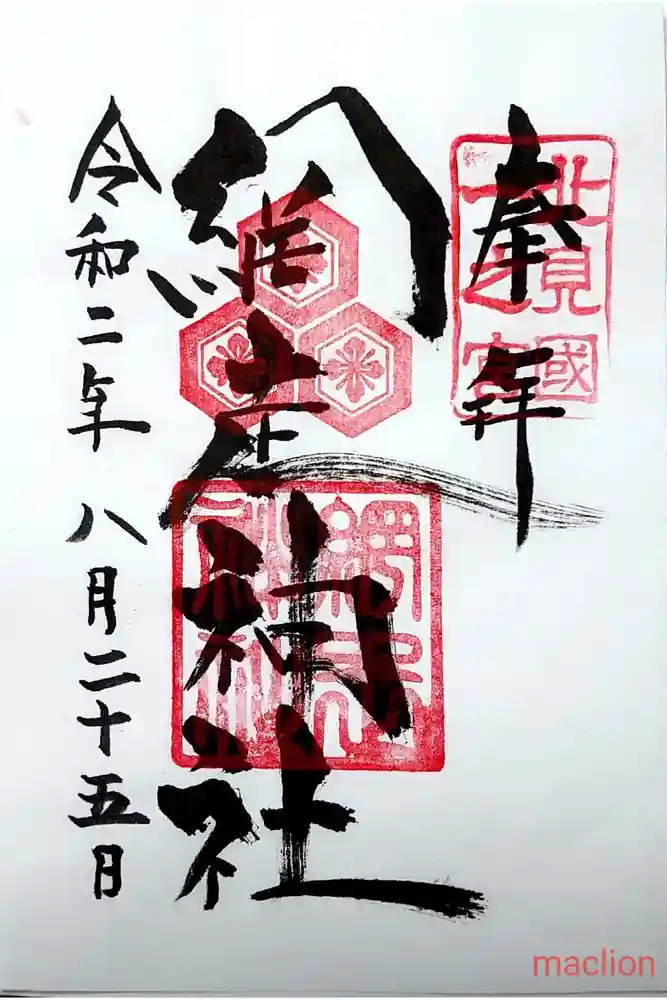 奉拝
北見國
一之宮
網走神社
令和二年八月二十五日
maclion